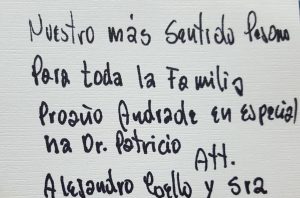 Nuestro más Sentido Pesame
Para toda la Familia
Proaño Andrade en especial
na Dr. Patricio
Att.
Alejandro Coello y Sra